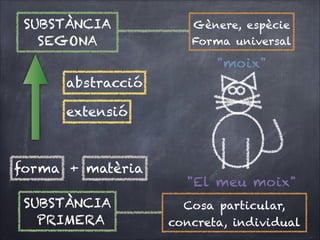 SUBSTÀNCIA
SEGONA
Gènere, espècie
Forma universal
"moix"
abstracció
extensió
forma + matèria
"El meu moix"
SUBSTÀNCIA
PRIMERA
Cosa particular,
concreta, individual